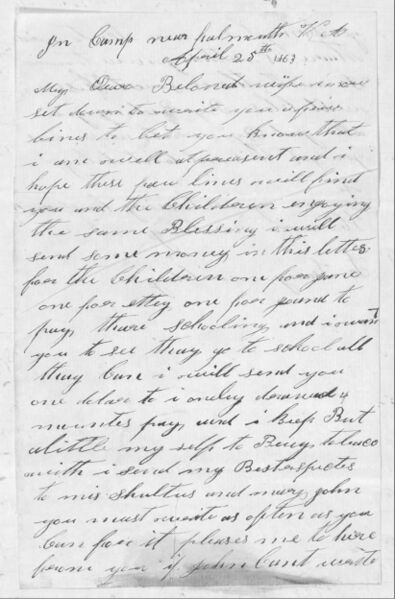 In Camp near falmouth V A
April 25th 1863
My Dear Beloved wife i now
set down to write you a few
lines to let you know that
i am well at preasent and i
hope these few lines will find
you and the Children enjoying
the same Blessing i will
send some money in this letter
for the Children one for
one for one for to
pay there schooling and i want
you to see they go to school all
they Can i will send you
one dolar to i onley drawed 4
mountes pay and i kep But
a little my self to Buy tobaco
with i send my Best
to mis Shultus and mary john
you must write as often as you
Can for it pleases me to here
from you if john Cant write